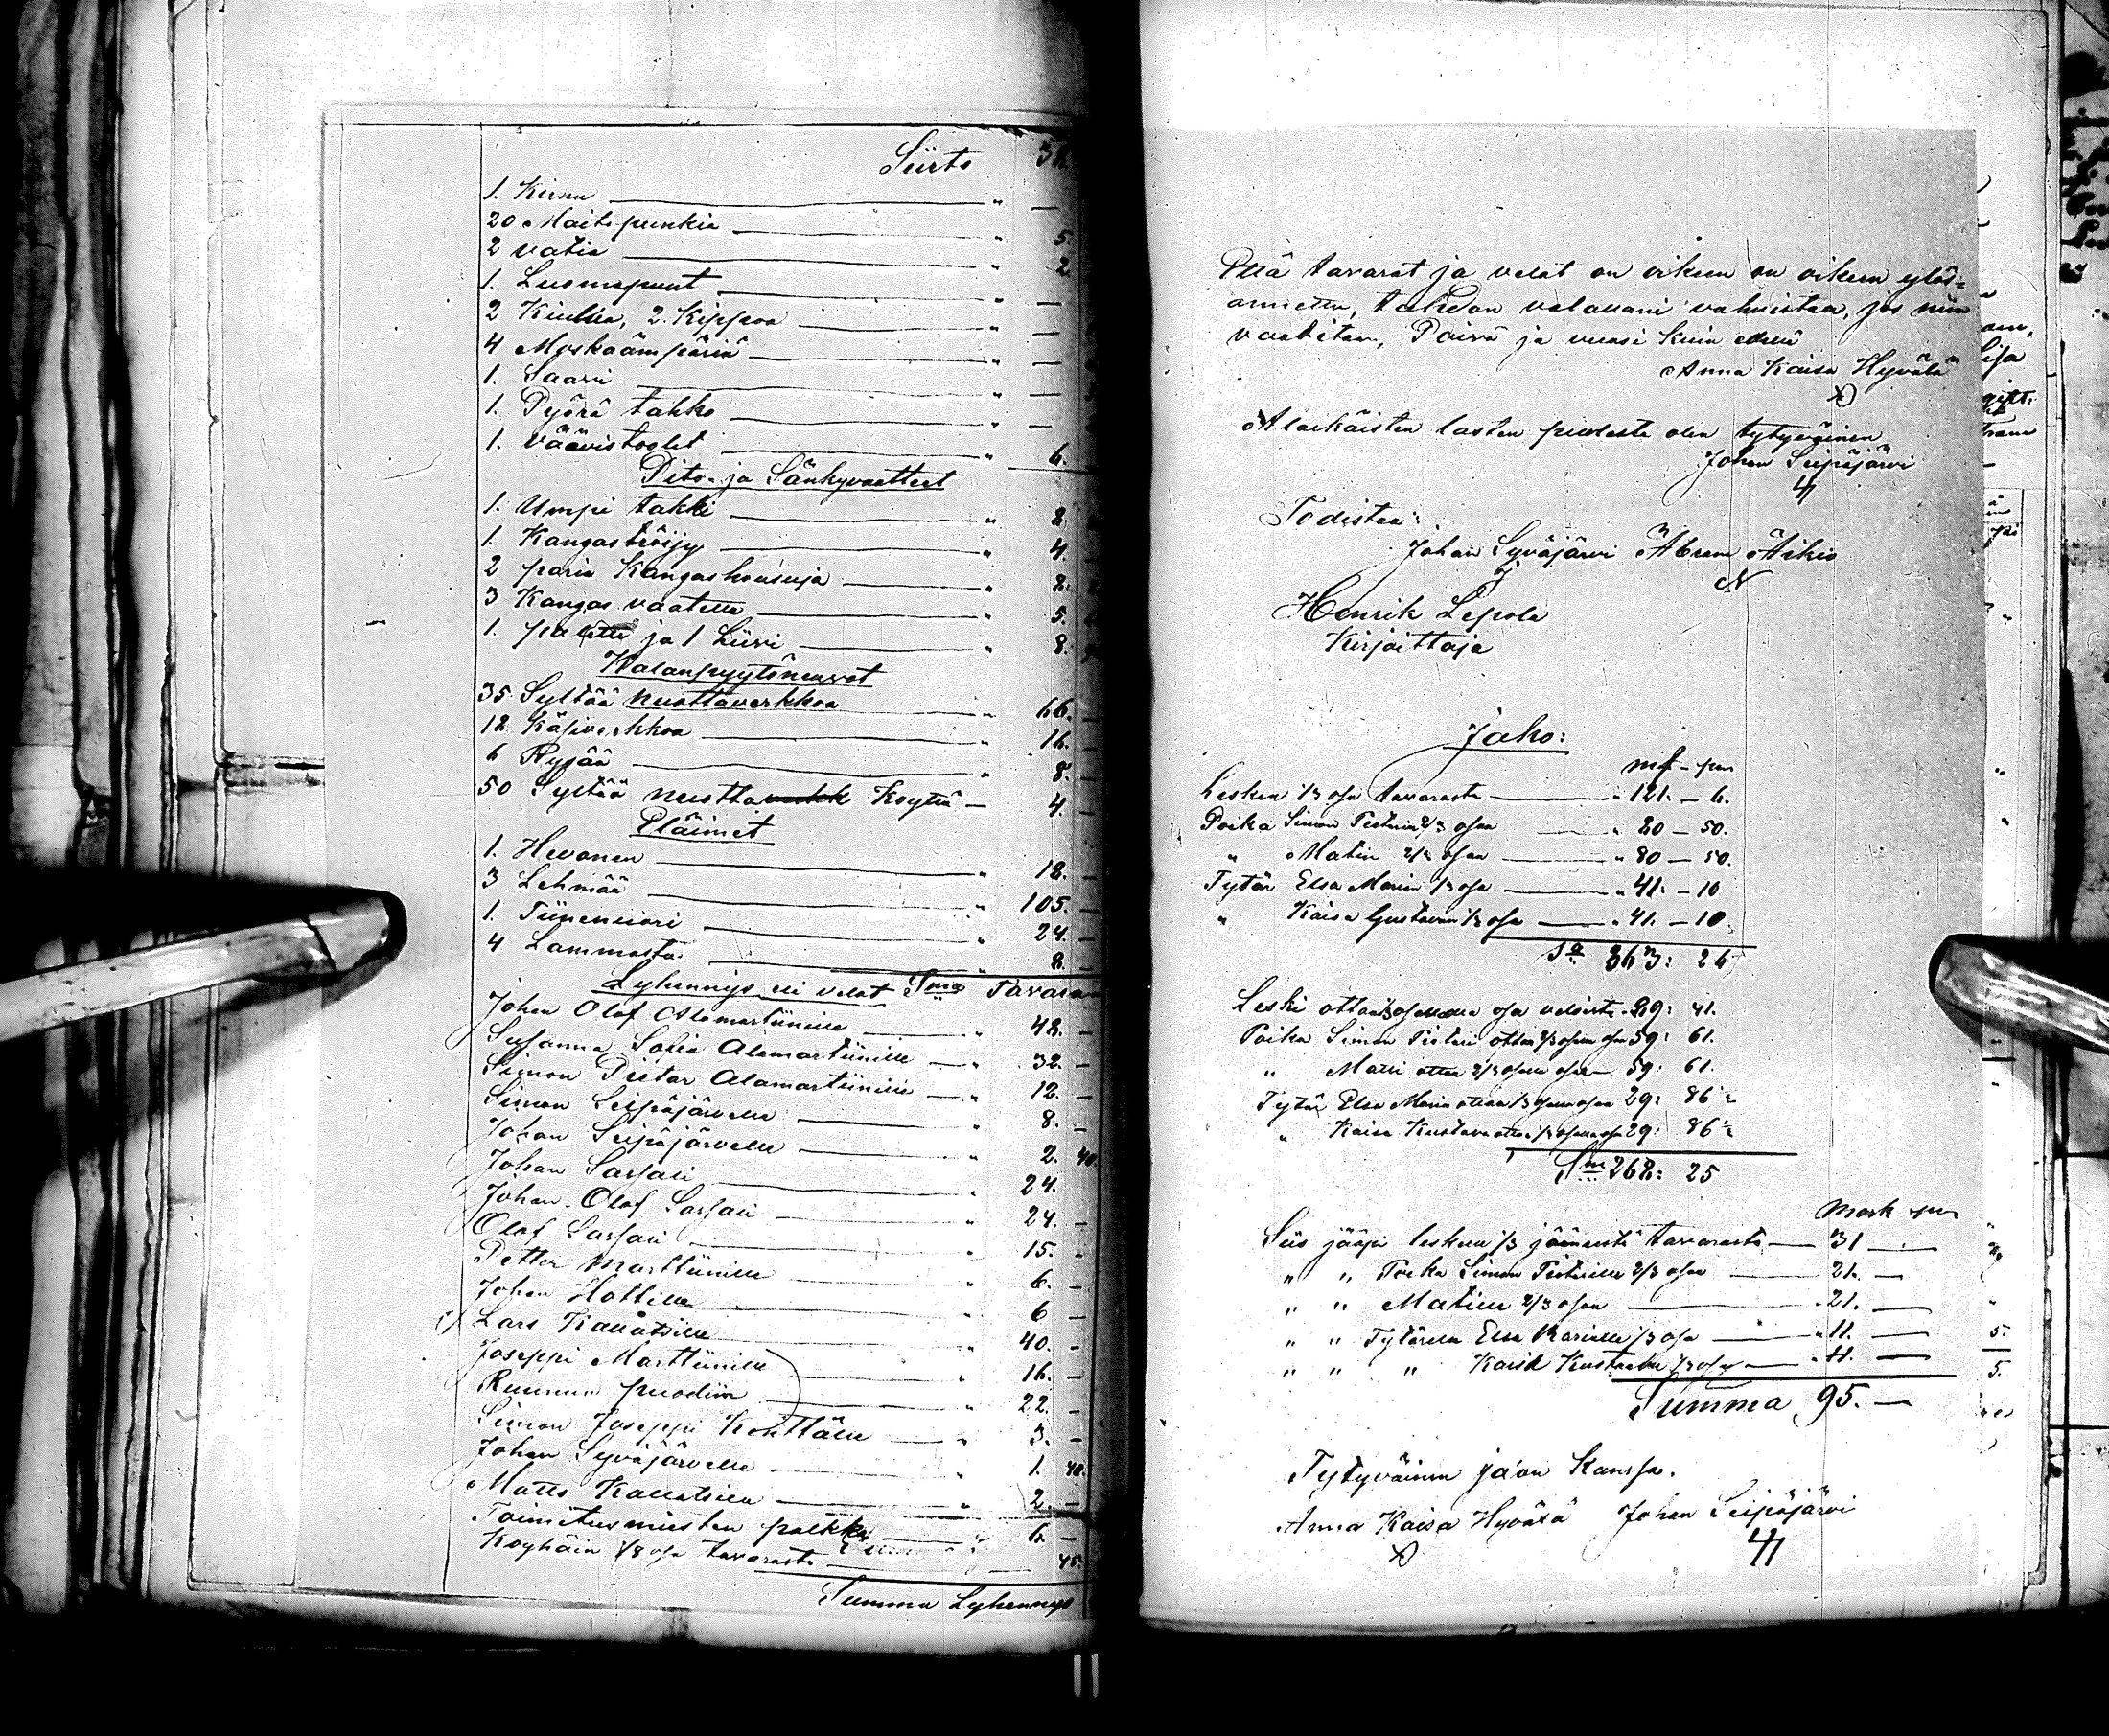 Siirto 3
1. Kirnu — " —
20 Maitopunkia — " 5.
2 vatia — " 2
1. Luomapuut — " —
2 Kiulua, 2. Kippoa — " —
4 Moskaämpäriä — " —
1. Saavi — " —
1. Pyörä tahko — " —
1. väävistoolit — " 6.
Pito- ja Sänkyvaatteet
1. Umpi takki — " 8.
1. Kangaströijy — " 4.
2 paria Kangashousuja — " 8.
3 Kangas vaatetta — " 5.
1. ja 1 Liivi — " 8.
Kalanpyytöneuvot
35 Syltää nuottaverkkoa — " 66. —
12 Käsiverkkoa — " 16. —
6 Rysää — " 8. —
50 Syltää nuotta Koyttä — 4. —
Eläimet
1. Hevonen — " 18. —
3 Lehmää — " 105. —
1. Tiineniiori — " 24. —
4 Lammasta — " 8. —
Lyhennys eli velat Sma Tavaran
Johan Olof Alamartiinille — " 48. —
Susanna Sofia Alamartiinille — " 32. —
Simon Pietar Alamartiinille — " 12. —
Simon Seipäjärvelle — " 8. —
Johan Seipäjärvelle — " 2. 40.
Johan Sassali — " 24.
Johan Olof Sassali — " 24. —
Olof Sassali — " 15. —
Petter Marttiinille — " 6. —
Johan Hottille — " 6 —
Lars Kallatsille — " 40. —
Joseppi Marttiinille — " 16. —
Ruunun puodiin — " 22. —
Simon Joseppi Konttälle — " 3. —
Johan Syväjärvelle — " 1. 40.
Matts Kallatsille — " 2. —
Toimitusmiesten palkka — 6 —
Koyhäin 1/8 osa tavarasta — 45.
Summa Lyhennys
Että tavarat ja velat on oikeen on oikeen ylös=
annettu, tahdon valallani vahvistaa, jos niin
vaaditaan, Päivä ja vuosi kuin edellä
Anna Kaisa Hyvälä
Alaikäisten lasten puolesta olen tytyväinen
Johan Seipäjärvi
Todistaa:
Johan Syväjärvi Abram Äikio
Henrik Lepola
Kirjoittaja
Jako:
mk – pen
Lesken 1/3 osa tavarasta — " 121. — 6.
Poika Simon Peterin 2/3 osaa — " 80 — 50.
" Matin 2/3 osaa — " 80 — 50.
Tytär Elsa Marian 1/3 osa — " 41. — 10
" Kaisa Gustavan 1/3 osa — " 41. — 10.
Sa 363: 26
Leski ottaa osa veloista 89: 41.
Poika Simon Pieteri ottaa 2/3 osaa 59: 61.
" Matti ottaa 2/3 osaa 59: 61.
Tytär Elsa Maria ottaa 1/3 29: 86½
" Kaisa Kustava ottaa 1/3 29: 86½
Sm 268: 25
Mark pen
Siis jääpi leskelle 1/3 jäänestä tavarasta — 31 —
" " Poika Simon Pieterille 2/3 osaa — 21. —
" " Matille 2/3 osaa — 21. —
" " Tytärelle Elsa Marialle 1/3 osa — " 11. —
" " " Kaisa Kustavalle 1/3 osa — " 11. —
Summa 95. —
Tytyväinen jaon kanssa.
Anna Kaisa Hyvälä Johan Seipäjärvi